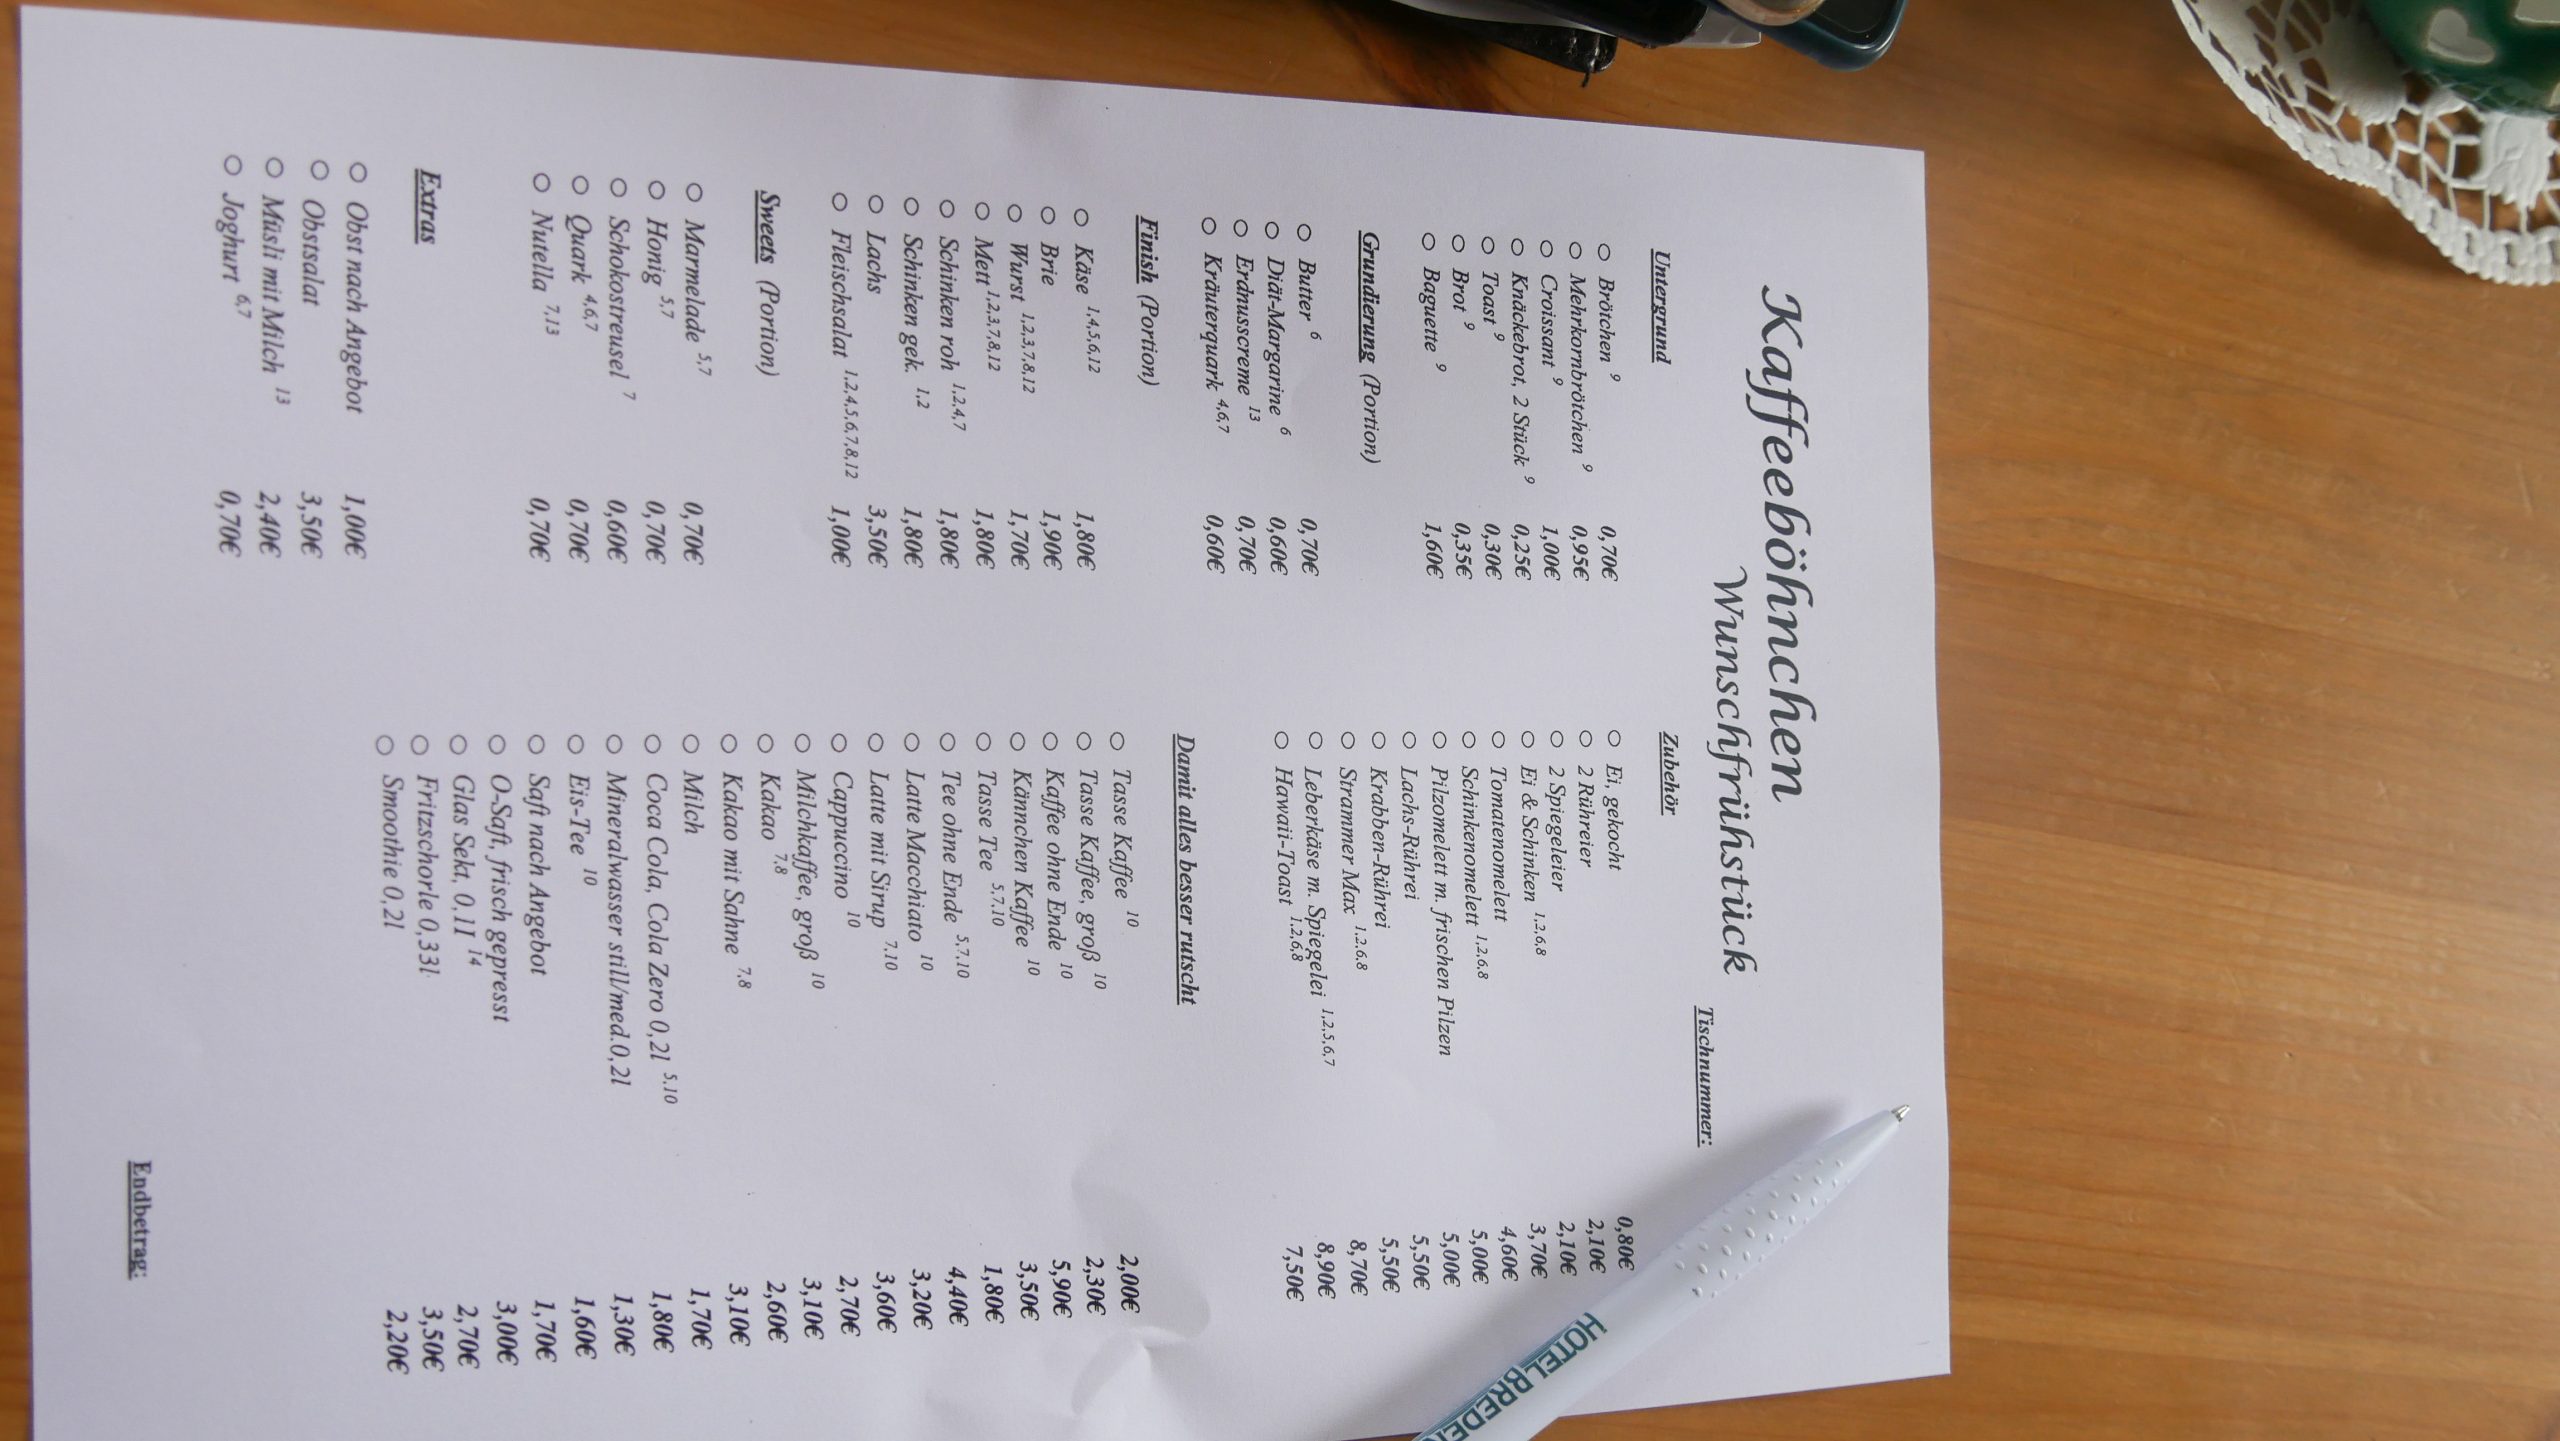 Kaffeeböhnchen
Wunschfrühstück
Tischnummer:
Untergrund
Brötchen 9 0,70€
Mehrkornbrötchen 9 0,95€
Croissant 9 1,00€
Knäckebrot, 2 Stück 9 0,25€
Toast 9 0,30€
Brot 9 0,35€
Baguette 9 1,60€
Grundierung (Portion)
Butter 6 0,70€
Diät-Margarine 6 0,60€
Erdnusscreme 13 0,70€
Kräuterquark 4,6,7 0,60€
Finish (Portion)
Käse 1,4,5,6,12 1,80€
Brie 1,90€
Wurst 1,2,3,7,8,12 1,70€
Mett 1,2,3,7,8,12 1,80€
Schinken roh 1,2,4,7 1,80€
Schinken gek. 1,2 1,80€
Lachs 3,50€
Fleischsalat 1,2,4,5,6,7,8,12 1,00€
Sweets (Portion)
Marmelade 5,7 0,70€
Honig 5,7 0,70€
Schokostreusel 7 0,60€
Quark 4,6,7 0,70€
Nutella 7,13 0,70€
Extras
Obst nach Angebot 1,00€
Obstsalat 3,50€
Müsli mit Milch 13 2,40€
Joghurt 6,7 0,70€
Zubehör
Ei, gekocht 0,80€
2 Rühreier 2,10€
2 Spiegeleier 2,10€
Ei & Schinken 1,2,6,8 3,70€
Tomatenomelett 4,60€
Schinkenomelett 1,2,6,8 5,00€
Pilzomelett m. frischen Pilzen 5,00€
Lachs-Rührei 5,50€
Krabben-Rührei 5,50€
Strammer Max 1,2,6,8 8,70€
Leberkäse m. Spiegelei 1,2,5,6,7 8,90€
Hawaii-Toast 1,2,6,8 7,50€
Damit alles besser rutscht
Tasse Kaffee 10 2,00€
Tasse Kaffee, groß 10 2,30€
Kaffee ohne Ende 10 5,90€
Kännchen Kaffee 10 3,50€
Tasse Tee 5,7,10 1,80€
Tee ohne Ende 5,7,10 4,40€
Latte Macchiato 10 3,20€
Latte mit Sirup 7,10 3,60€
Cappuccino 10 2,70€
Milchkaffee, groß 10 3,10€
Kakao 7,8 2,60€
Kakao mit Sahne 7,8 3,10€
Milch 1,70€
Coca Cola, Cola Zero 0,2l 5,10 1,80€
Mineralwasser still/med.0,2l 1,30€
Eis-Tee 10 1,60€
Saft nach Angebot 1,70€
O-Saft, frisch gepresst 3,00€
Glas Sekt, 0,1l 14 2,70€
Fritzschorle 0,33l 3,50€
Smoothie 0,2l 2,20€
Endbetrag: